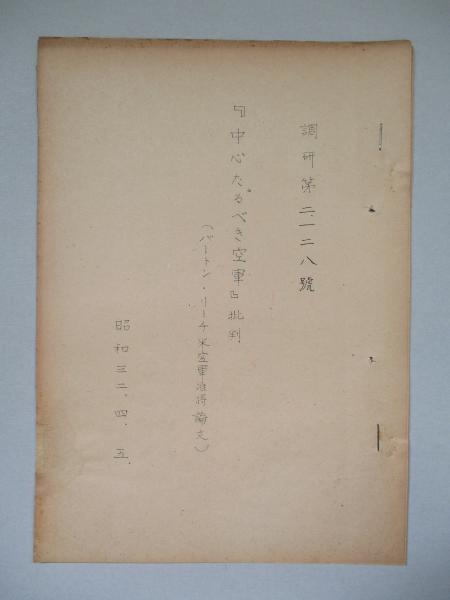 調研第二、一二八號
『中心たるべき空軍』批判
(バートン・リーチ米空軍准将論文)
昭和三二、四、五、